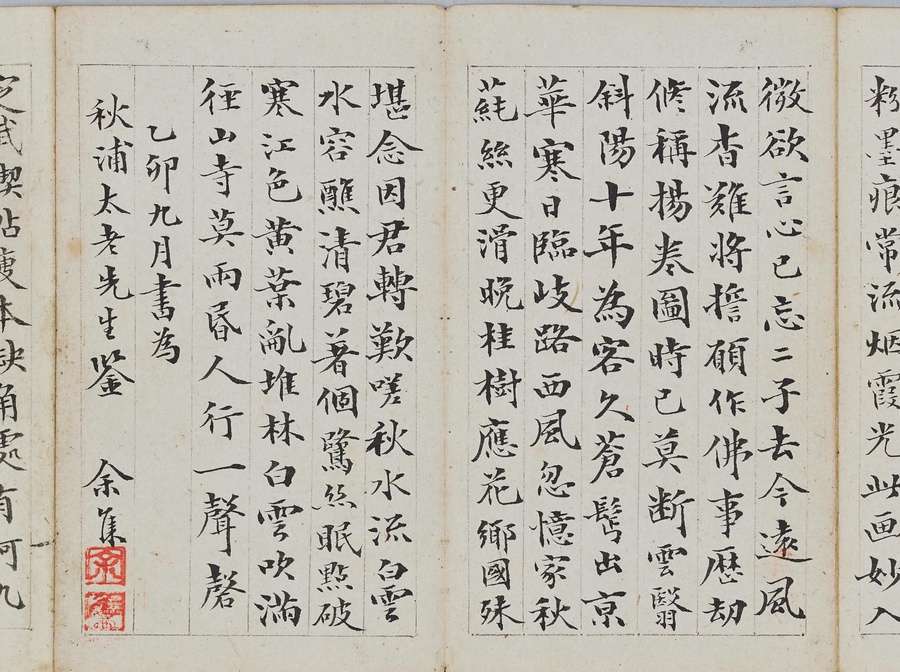 粉墨痕常流烟霞光此画妙入
微欲言心已忘二子去今遠風
流杳難將誓願作佛事歷劫
修稱揚卷圖時已莫斷雲翳
斜陽十年為客久蒼髩出京
華寒日臨歧路西風忽憶家秋
蒓絲更滑晚桂樹應花鄉國殊
堪念因君轉歎嗟秋水流白雲
水容醮清碧著個鷺絲眠點破
寒江色黃葉亂堆林白雲吹滿
徑山寺莫雨昏人行一聲磬
乙卯九月書為
秋浦太老先生鑒 余集
定武禊帖瘦本缺角處有何九